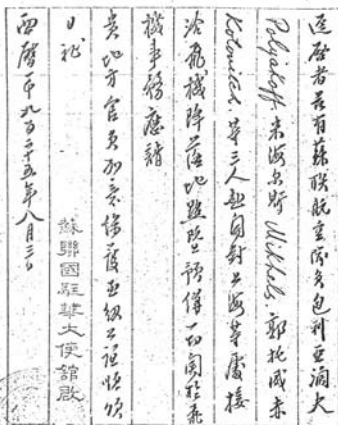 逕啓者茲有蘇聯航空隊員包利亞闊夫
Polyakoff 米海尔斯 Mikhels 郭托威赤
Kotovitch 等三人赴開封上海等處接
洽飛機降落地點暨預備一切關於飛
機事務應請
貴地方官員加意保護並級公誼順頌
日祉
蘇聯國駐華大使館啟
西曆一千九百二十五年八月三日